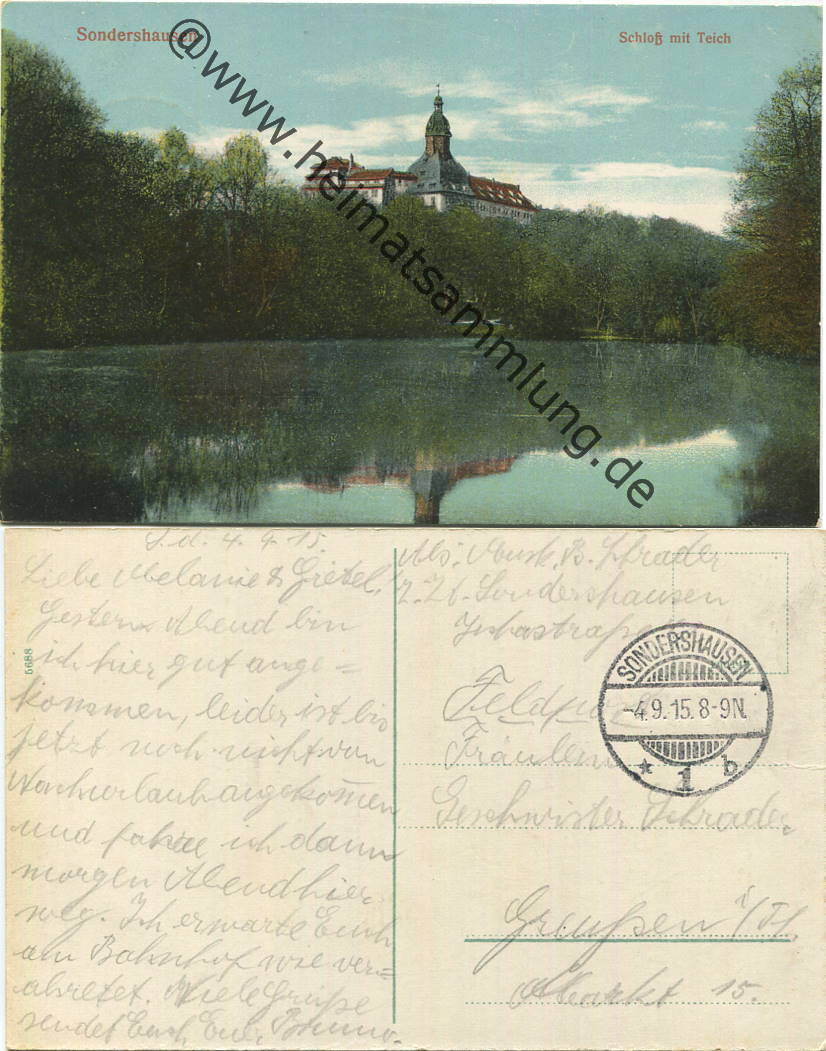 Sondershausen
Schloß mit Teich
@www.heimatsammlung.de
S. d. 4. 9. 15.
Liebe Melanie & Gretel,
Gestern Abend bin
ich hier gut ange=
kommen, leider ist bis
jetzt noch nicht von
Nachurlaub angekom̄en
und fahre ich dann
morgen Abend hier
weg. Ich erwarte Euch
am Bahnhof wie ver=
abretet. Viele Grüße
sendet Euch Euer Bruno.
5688
Abs. Musk. B. Schrader
z. Zt. Sondershausen
SONDERSHAUSEN
-4.9.15.8-9N.
* 1 b
Feldpost
Fräulein
Geschwister Schrader
Greußen i/Th.
Markt 15.